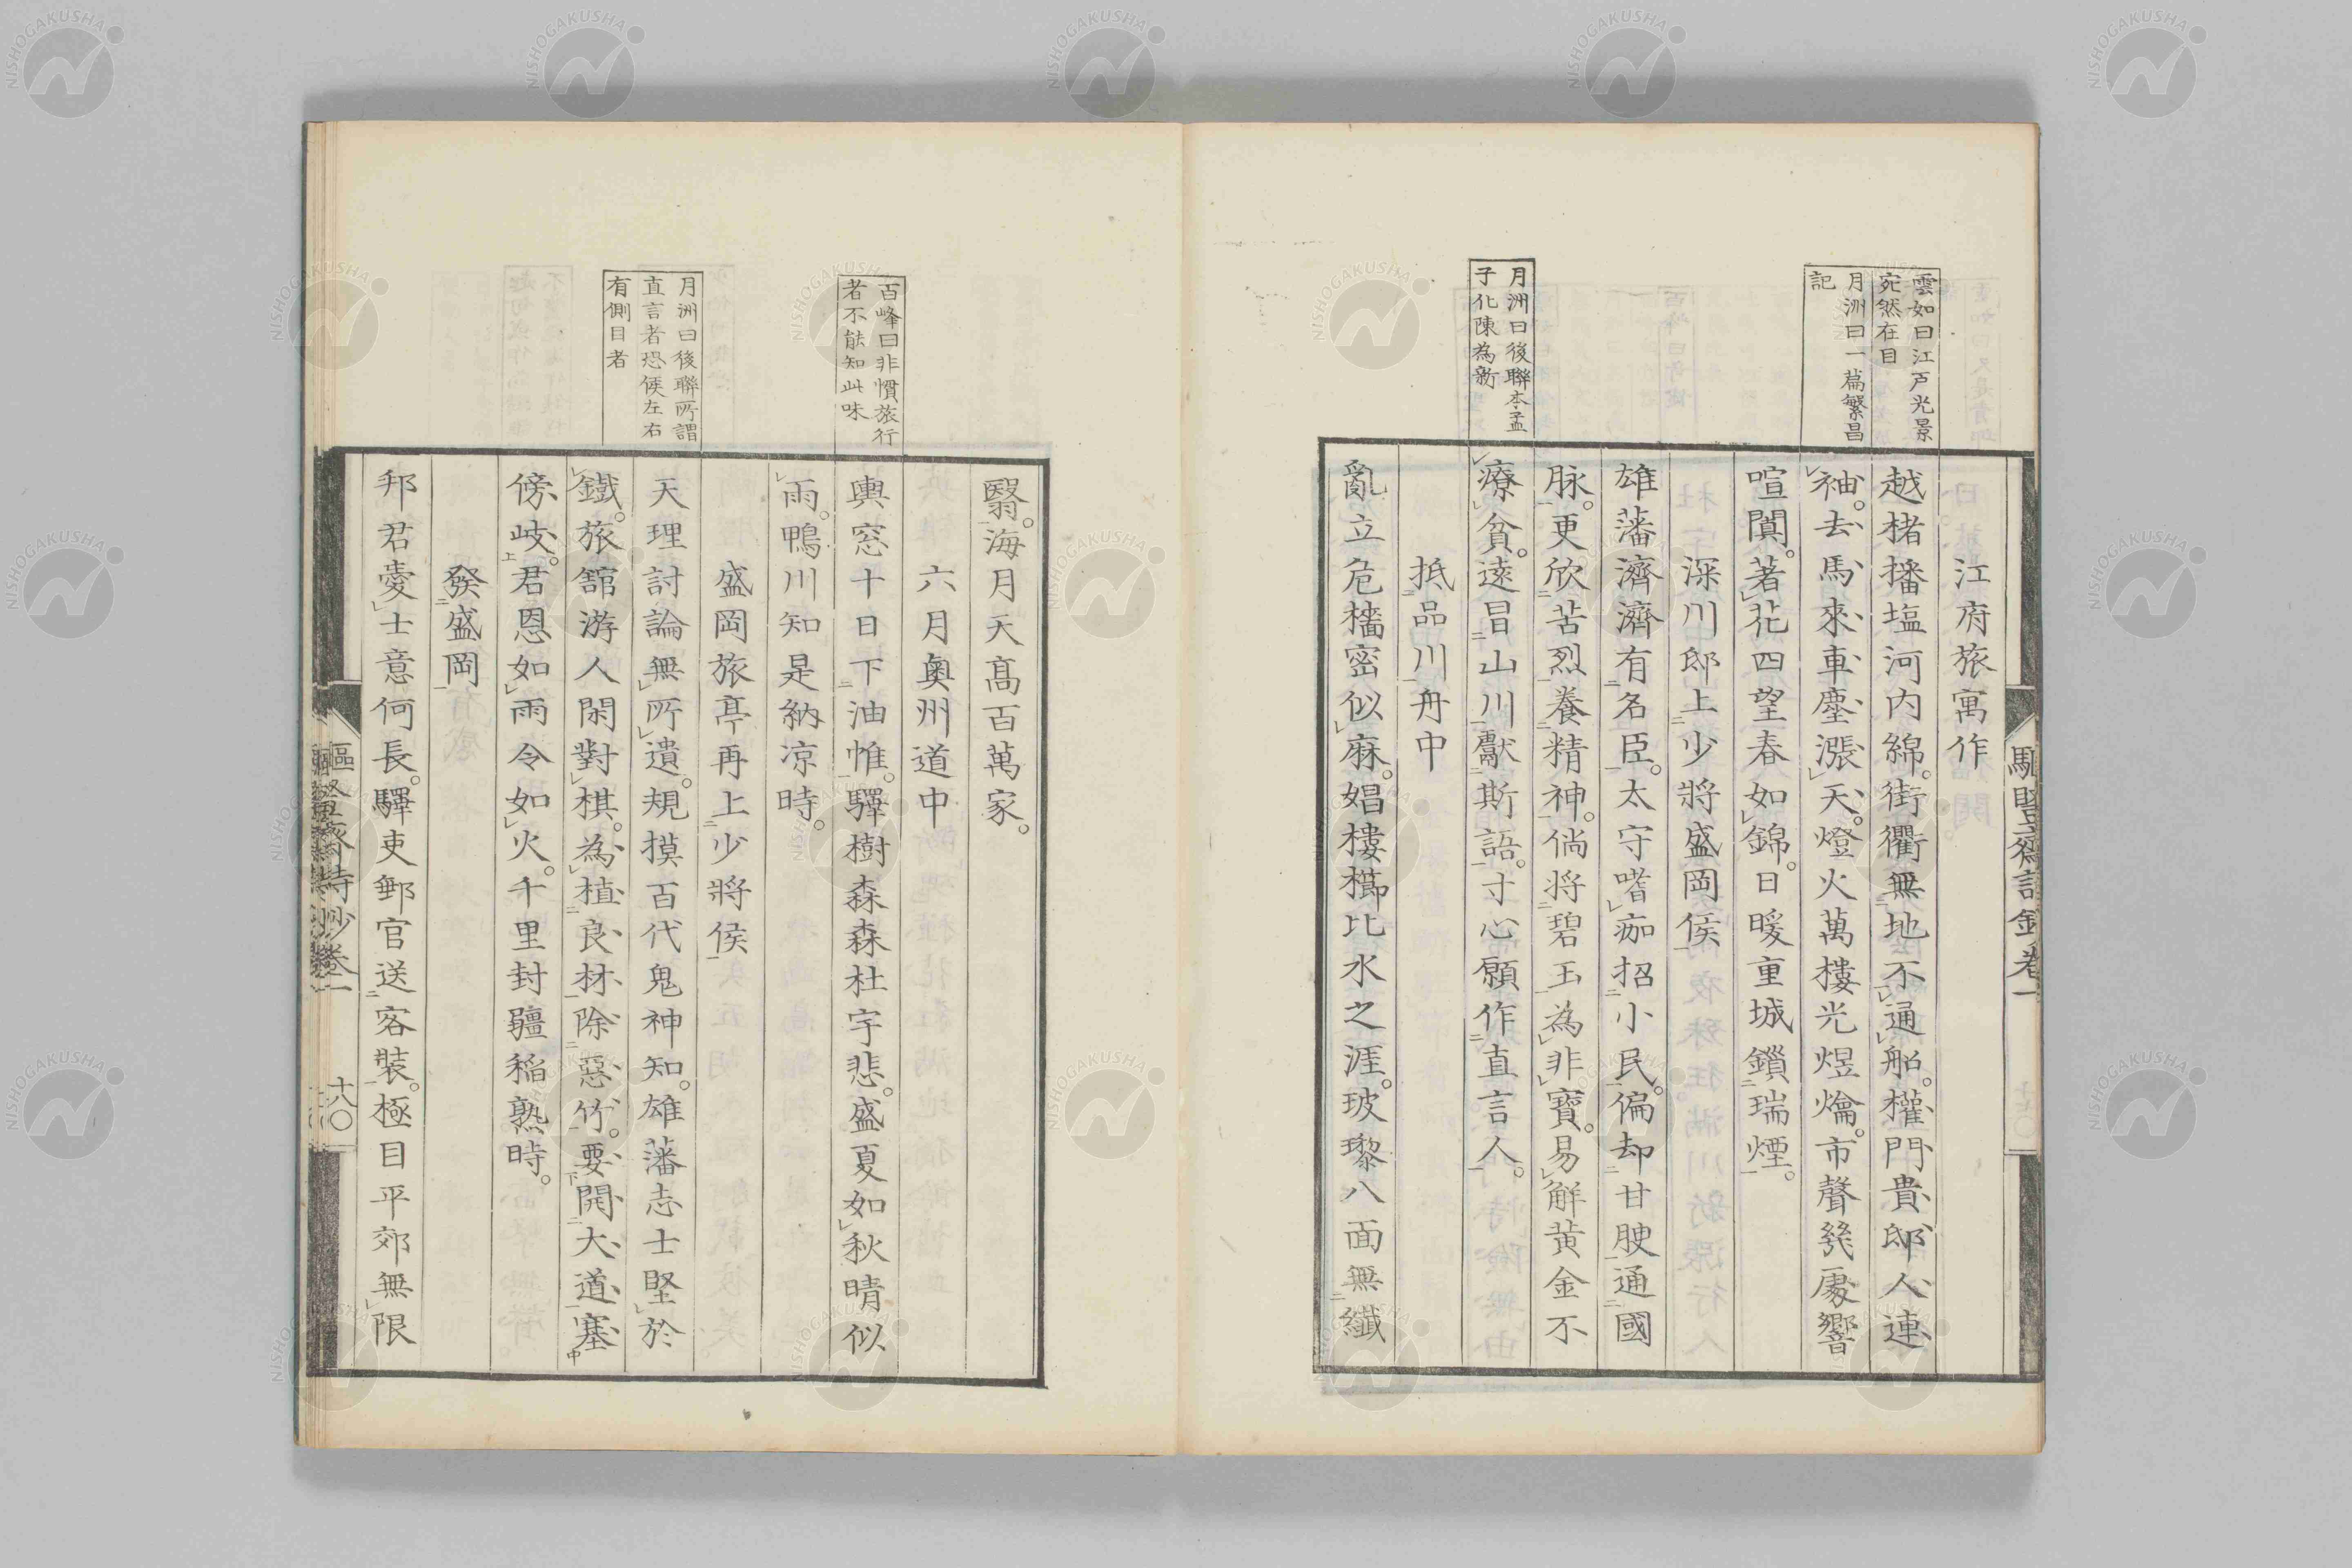 雲如曰江戸光景
宛然在目
月洲曰一篇繁昌
記
江府旅寓作
越楮播塩河内綿。街衢無地不通船。權門貴邸人連
袖。去馬來車塵漲天。燈火萬樓光煜爚。市聲幾處響
喧闐。著花四望春如錦。日暖重城鎖瑞煙。
深川邸上少將盛岡侯
雄藩濟濟有名臣。太守嗜痂招小民。偏却甘腴通國
脉。更欣苦烈養精神。倘將碧玉為非寶。易解黃金不
月洲曰後聯本孟
子化陳為新
療貧。遠冒山川獻斯語。寸心願作直言人。
抵品川舟中
亂立危檣密似麻。娼樓櫛比水之涯。玻瓈八面無纖
翳。海月天髙百萬家。
六月奧州道中
百峰曰非慣旅行
者不能知此味
輿窓十日下油帷。驛樹森森杜宇悲。盛夏如秋晴似
雨。鴨川知是納凉時。
盛岡旅亭再上少將侯
月洲曰後聯所謂
直言者恐侯左右
有側目者
天理討論無所遺。規摸百代鬼神知。雄藩志士堅於
鐵。旅舘游人閑對棋。為植良材除惡竹。要開大道塞
傍岐。君恩如雨令如火。千里封疆稲熟時。
發盛岡
邦君愛士意何長。驛吏郵官送客裝。極目平郊無限
詩鈔卷一
十八